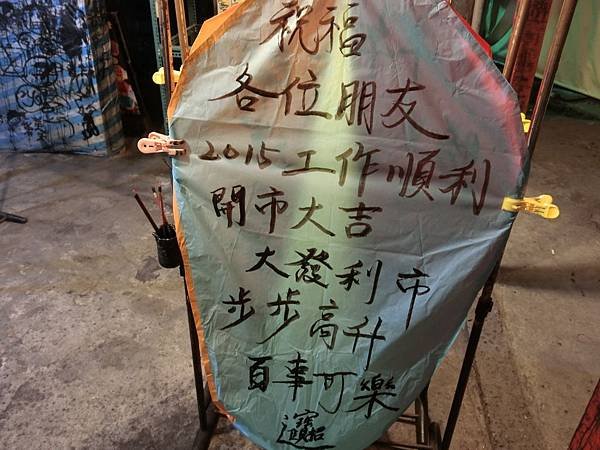 祝福
各位朋友
2015工作順利
開市大吉
大發利市
步步高升
百事可樂